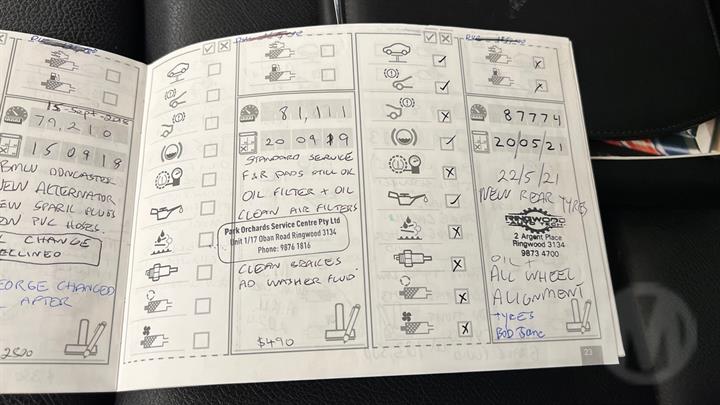 15-Sept-2018
79,210
15 09 18
BMW DONCASTER
NEW ALTERNATOR
NEW SPARK PLUGS
PVC HOSES.
CHANGE
DECLINED
GEORGE CHANGED
AFTER
2500
81,111
20 09 19
STANDARD SERVICE
F&R PADS STILL OK
OIL FILTER + OIL
CLEAN AIR FILTERS
Park Orchards Service Centre Pty Ltd
Unit 1/17 Oban Road Ringwood 3134
Phone: 9876 1816
CLEAN BRAKES
AD WASHER FLUID
$490
87774
20/05/21
22/5/21
NEW REAR TYRES
RINGWOOD
2 Argent Place
Ringwood 3134
9873 4700
OIL +
ALL WHEEL
ALIGNMENT
TYRES
BOB Jane
23
M